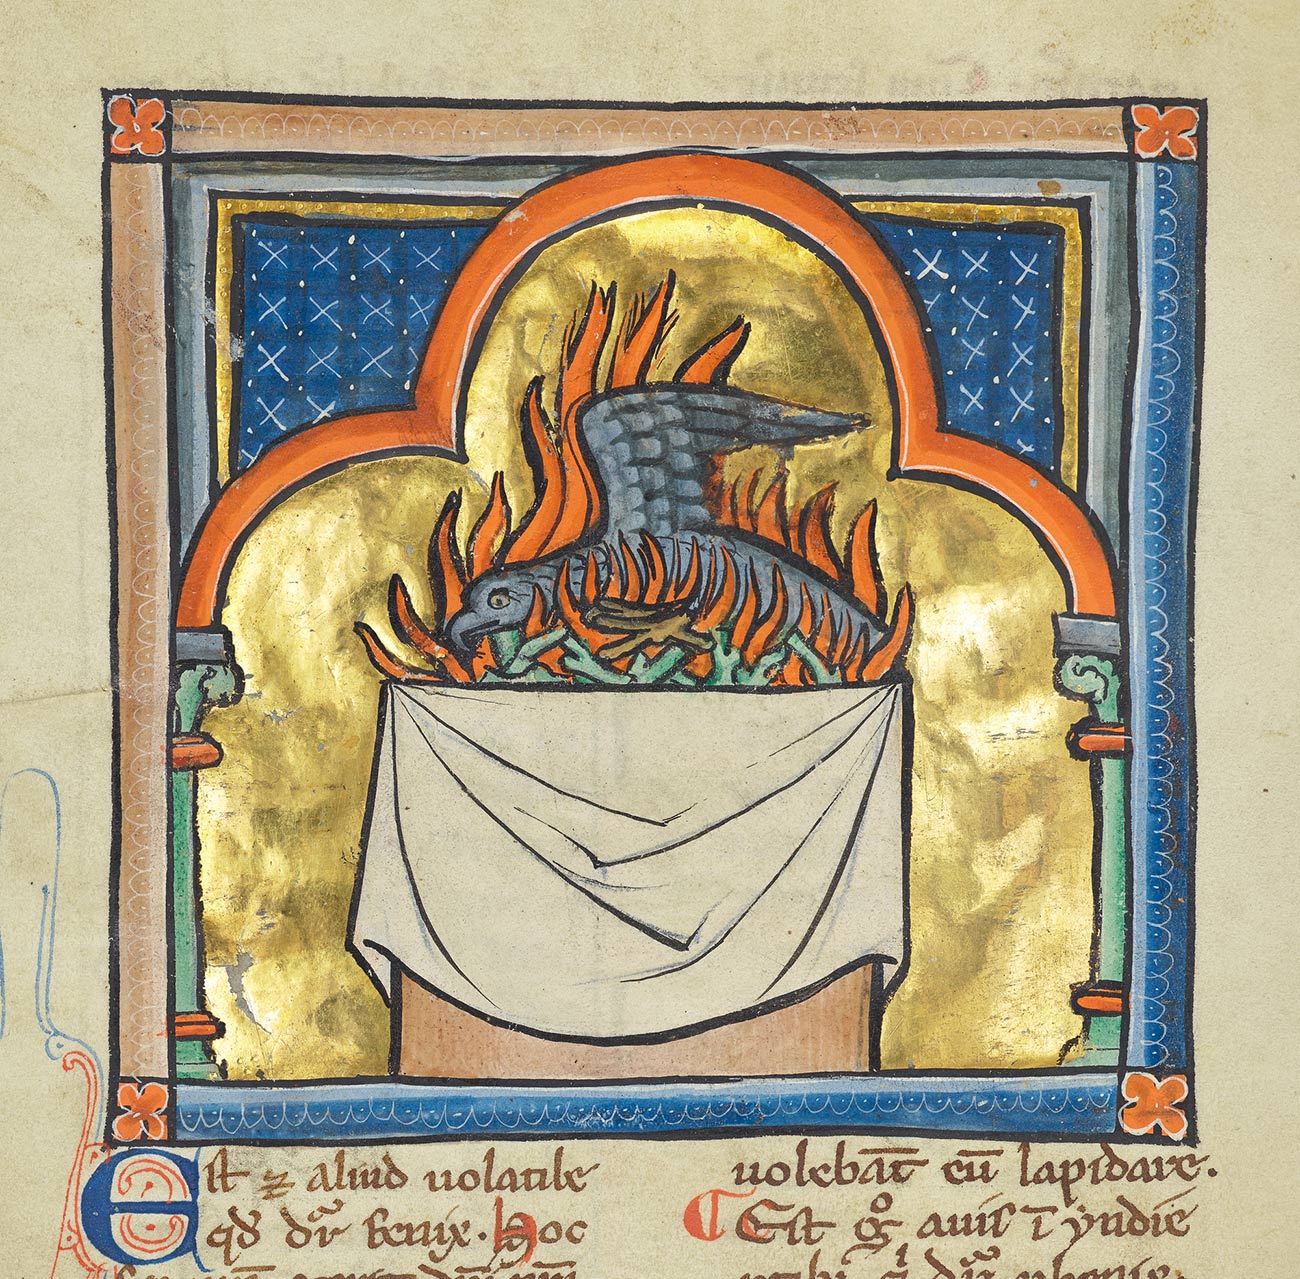 Est ⁊ aliud uolatile
qđ dr̄ fenix. Hoc
uolebāt eū lapidare.
¶ Est gͦ auis ī yndie